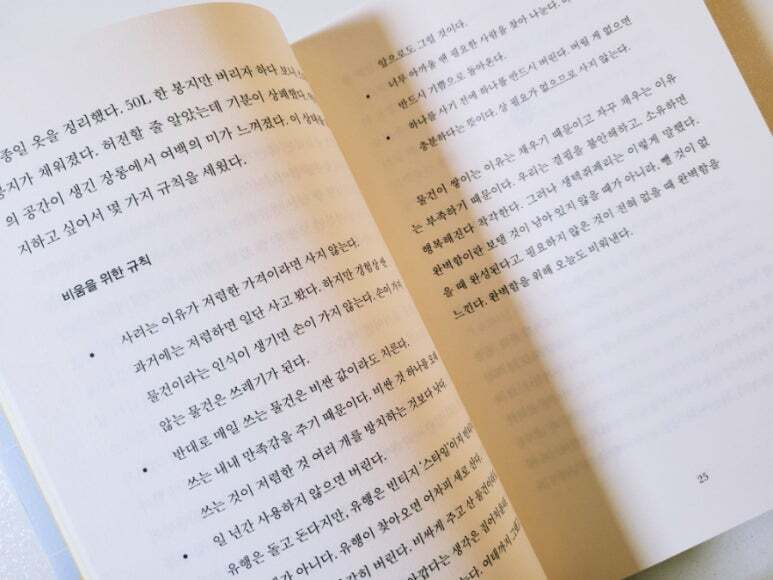 종일 옷을 정리했다. 50L, 한 봉지만 버리자 하다 보니
봉지가 채워졌다. 허전할 줄 알았는데 기분이 상쾌했다.
의 공간이 생긴 장롱에서 여백의 미가 느껴졌다. 이 상태를
지하고 싶어서 몇 가지 규칙을 세웠다.
비움을 위한 규칙
• 사려는 이유가 저렴한 가격이라면 사지 않는다.
과거에는 저렴하면 일단 사고 봤다. 하지만 경험상 싼
물건이라는 인식이 생기면 손이 가지 않는다. 손이 가지
않는 물건은 쓰레기가 된다.
• 반대로 매일 쓰는 물건은 비싼 값이라도 치른다.
쓰는 내내 만족감을 주기 때문이다. 비싼 것 하나를 오래
쓰는 것이 저렴한 것 여러 개를 방치하는 것보다 낫다.
• 일 년간 사용하지 않으면 버린다.
유행은 돌고 돈다지만, 유행은 빈티지 '스타일'이지
가 아니다. 유행이 찾아오면 어차피 새로 산다.
히 버린다. 비싸게 주고 산 물건이라
아깝다는 생각은 집어치운다
이때까지 그랬
앞으로도 그럴 것이다.
• 너무 아까울 땐 필요한 사람을 찾아 나눈다.
반드시 기쁨으로 돌아온다.
• 하나를 사기 전에 하나를 반드시 버린다. 버릴 게 없으면
충분하다는 뜻이다. 살 필요가 없으므로 사지 않는다.
물건이 쌓이는 이유는 채우기 때문이고 자꾸 채우는 이유
는 부족하기 때문이다. 우리는 결핍을 불안해하고, 소유하면
행복해진다 착각한다. 그러나 생텍쥐페리는 이렇게 말했다.
완벽함이란 보탤 것이 남아 있지 않을 때가 아니라, 뺄 것이 없
을 때 완성된다고. 필요하지 않은 것이 전혀 없을 때 완벽함을
느낀다. 완벽함을 위해 오늘도 비워낸다.
25